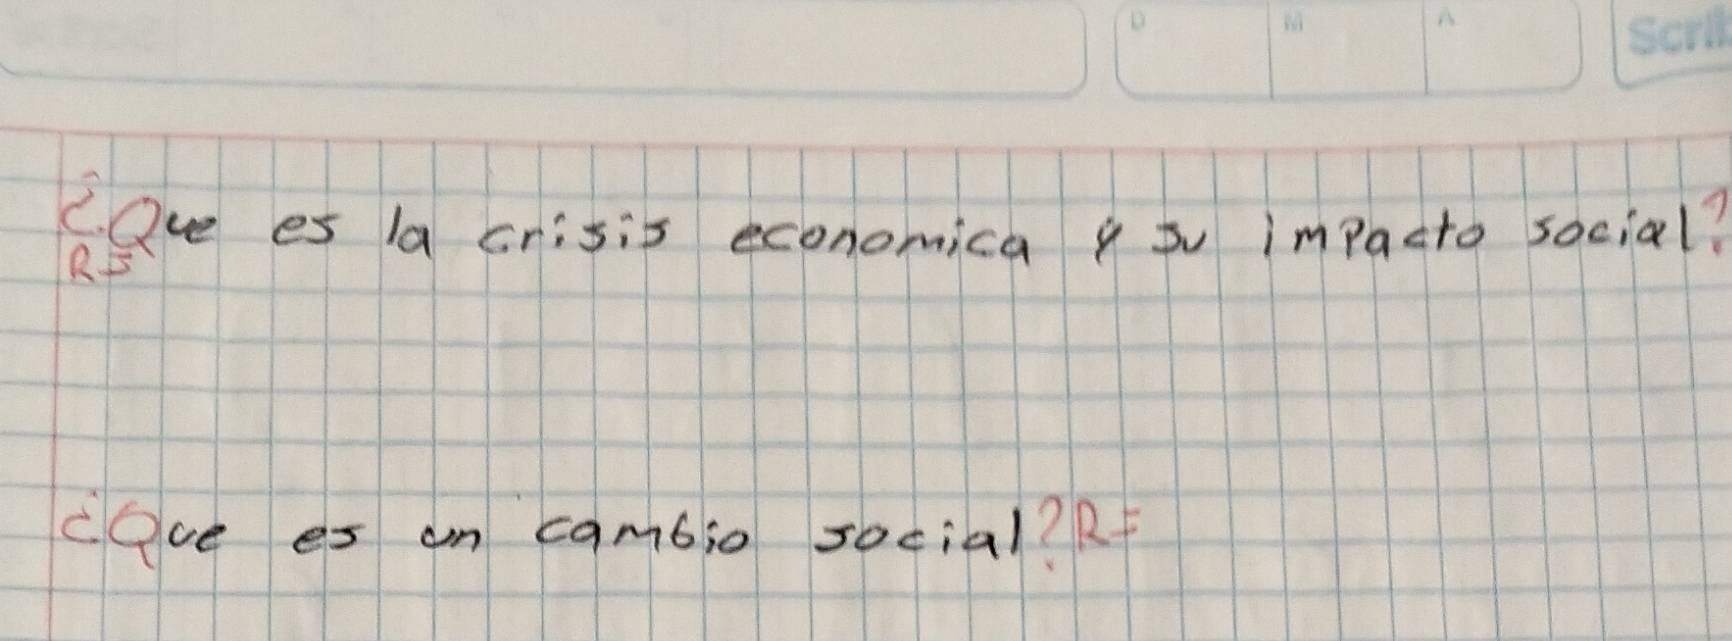 D M A Scrib
¿Que es la crisis economica y su impacto social?
R=
¿Que es un cambio social? R=